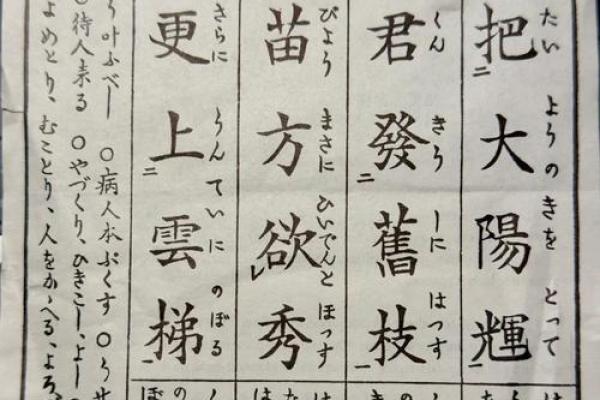 たいようのきをとって
把二大陽輝一
くんきうしにはつす
君發二舊枝一
びようまさにひいでんとほつす
苗方欲レ秀
さらにうんていにのぼる
更上二雲梯一
う叶ふべし ○病人本ぷくす ○う
○待人来る ○やづくり、ひきこし、よし
よめとり、むことり、人をかゝへる、よろ